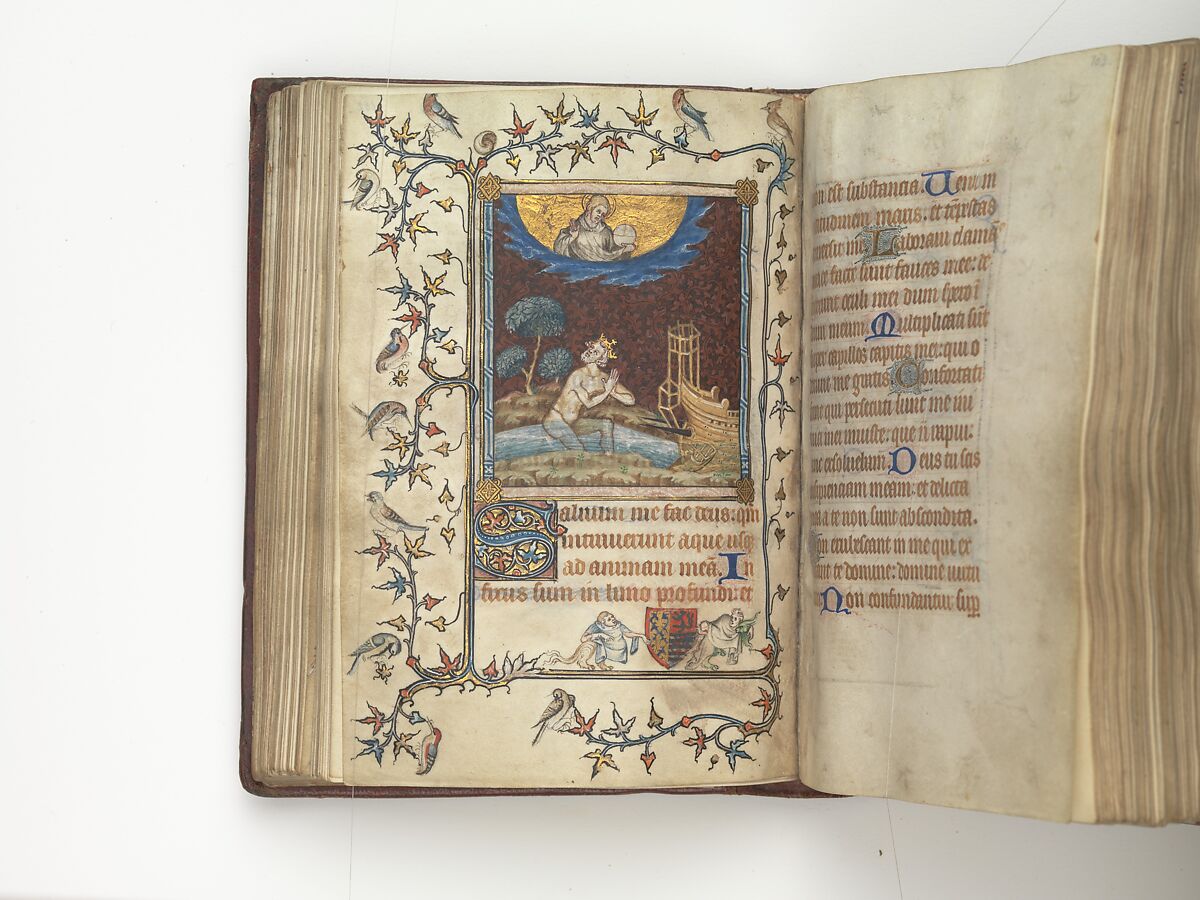 Salvum me fac deus: qm̄
intraverunt aque usq̨
ad animam meā. In
fixus sum in limo profundi: et
on est substantia. Veni in
altitudinem maris: et tēpestas
mersit me. Laboravi clamās
fauce facte sunt fauces mee: de
erunt oculi mei dum spero ī
deum meum. Multiplicati sūt
super capillos capitis mei: qui o
derunt me gratis. Confortati
sunt qui persecuti sunt me ini
mici mei iniuste: que n̄ rapui
tunc exsolvebam. Deus tu scis
insipientiam meam: et delicta
mea a te non sunt abscondita.
on erubescant in me qui ex
pectant te domine: domine virtu
Non confundantur sup̄
103